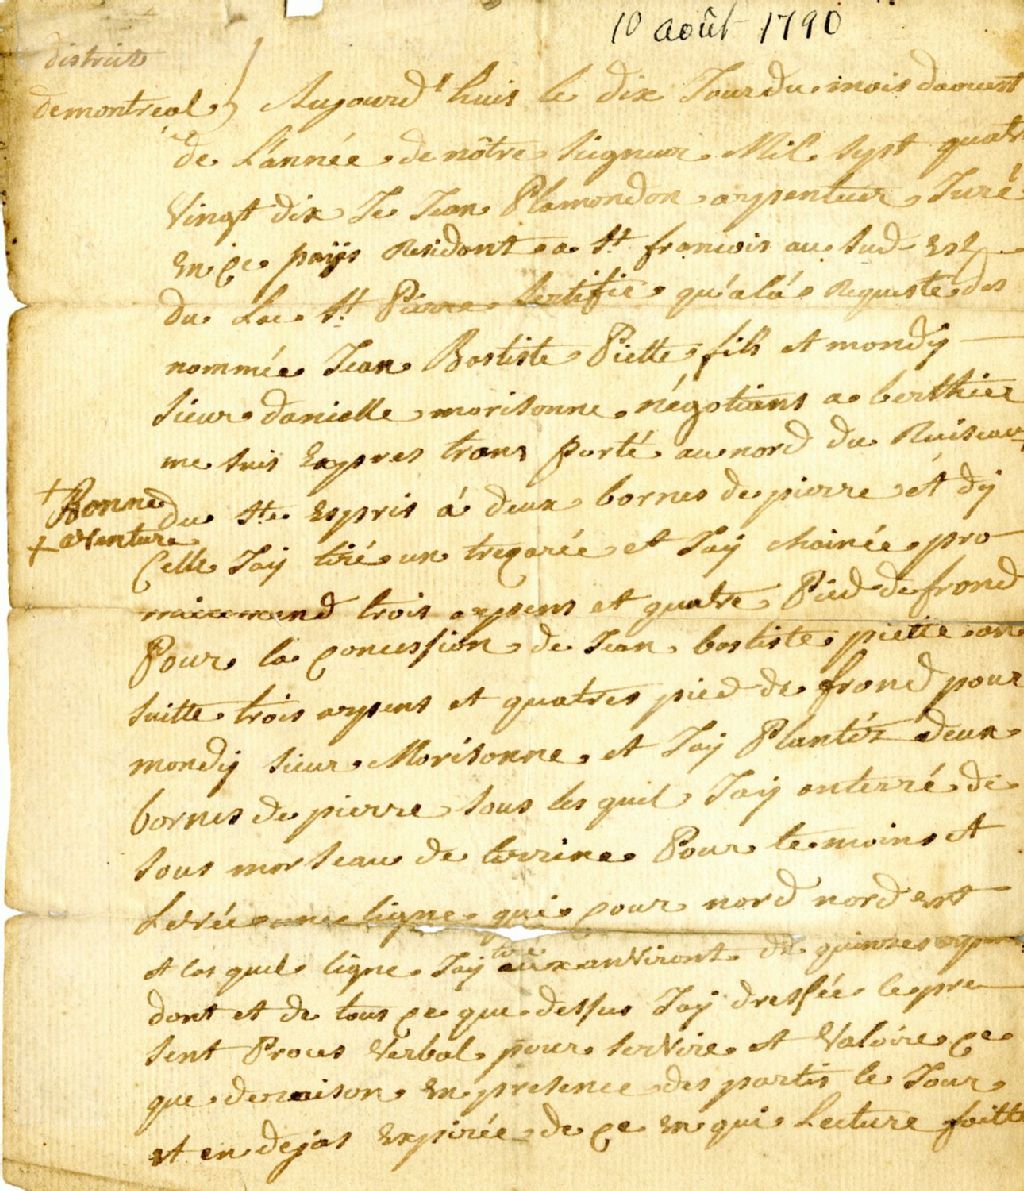 10 août 1790
district
de montreal
Aujourd'huis le dix Jour du mois daoust
de L'année de nôtre Seigneur Mil Sept quatr
Vingt dix Je Jean Plamondon arpenteur Juré
En ce païjs Residont a St francois au Sud Est
du Lac St Pierre Sertifie qu'alá Requeste des
nommée Jean Bastiste Piette fils et mondy
Sieur danielle morisonne négotiants a berthier
me suis Expres trans porté au nord du Ruiseau
+ Bonne
+ aventure
du St Espris á deux bornes de pierre et dy
Celle Jaij tiré un trecarée et Jaij chainée pro
mierement trois arpens et quatre Pied de frond
Pour la concession de Jean bastiste piette an
suitte trois arpens et quatres pied de frond pour
mondij sieur Morisonne et Jaij Plantéz deux
bornes de pierre sous les quel Jaij anterré de
sous morseau de terrine Pour temoins et
Levée une ligne qui cour nord nord est
et les quel ligne Jaij tiré aux anviront de quinzes arpen
dont et de tous ce que dessus Jaij dressée le pre
sent Proces Verbal pour servire et Valoire ce
que de raison En presence des partis le Jour
et en dejas Expirée de ce En qui Lecture faitte